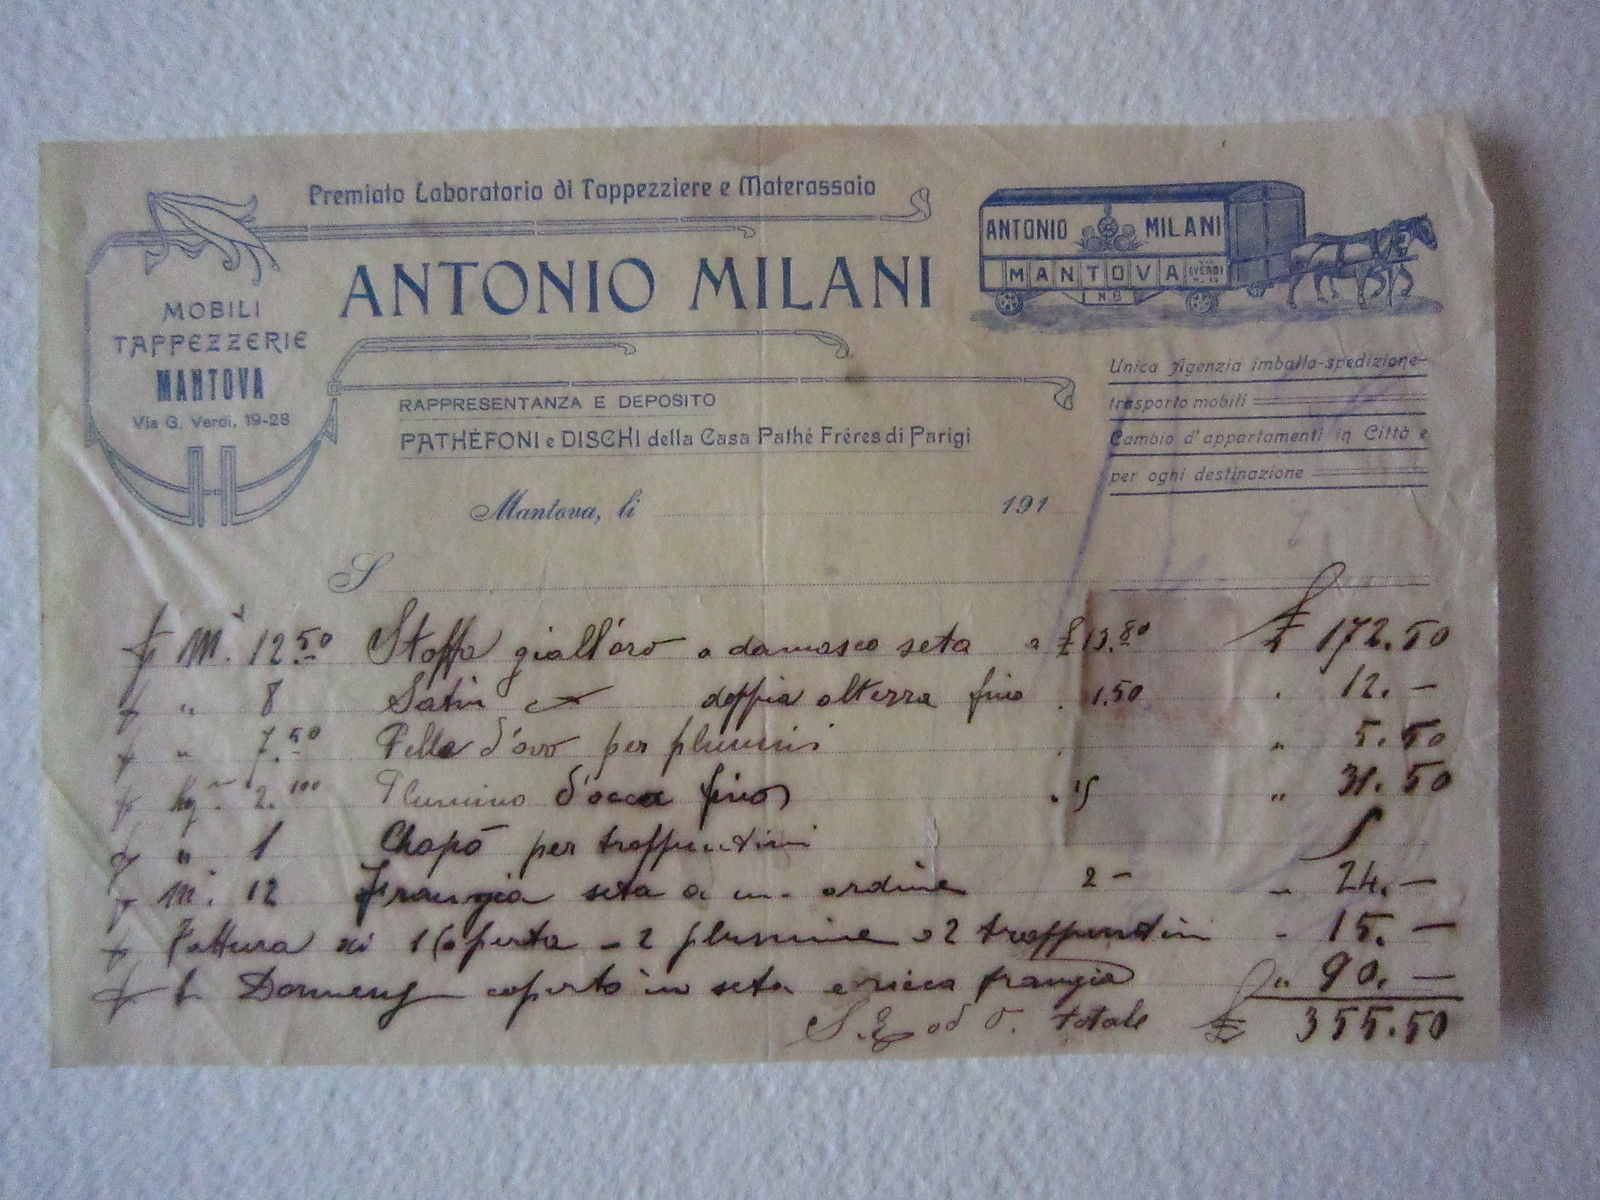 Premiato Laboratorio di Tappezziere e Materassaio
ANTONIO MILANI
MOBILI
TAPPEZZERIE
MANTOVA
Via G. Verdi, 19-28
RAPPRESENTANZA E DEPOSITO
PATHÉFONI e DISCHI della Casa Pathé Fréres di Parigi
ANTONIO MILANI
MANTOVA
Unica Agenzia imballo-spedizione-
trasporto mobili
Cambio d'appartamenti in Città e
per ogni destinazione
Mantova, li 191
S
M. 12.50 Stoffa giall'oro a damasco seta a £ 13.80 £ 172.50
" 8 Satin doppia altezza fino 1.50 12.-
" 7.50 Pelle d'ovo per plumini " 5.50
Kg. 2.100 Plumino d'occa fino 15 " 31.50
" 1 Chapò per trappuntini 5
M. 12 Frangia seta a m. ordine 2- 24.-
Fattura di 1 Coperta - 2 plumine e 2 trappuntini 15.-
coperto in seta e ricca frangia " 90.-
S. E. od O. totale £ 355.50